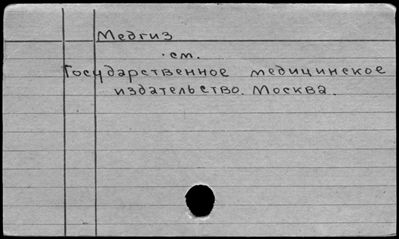 Медгиз
см.
Государственное медицинское
издательство. Москва.